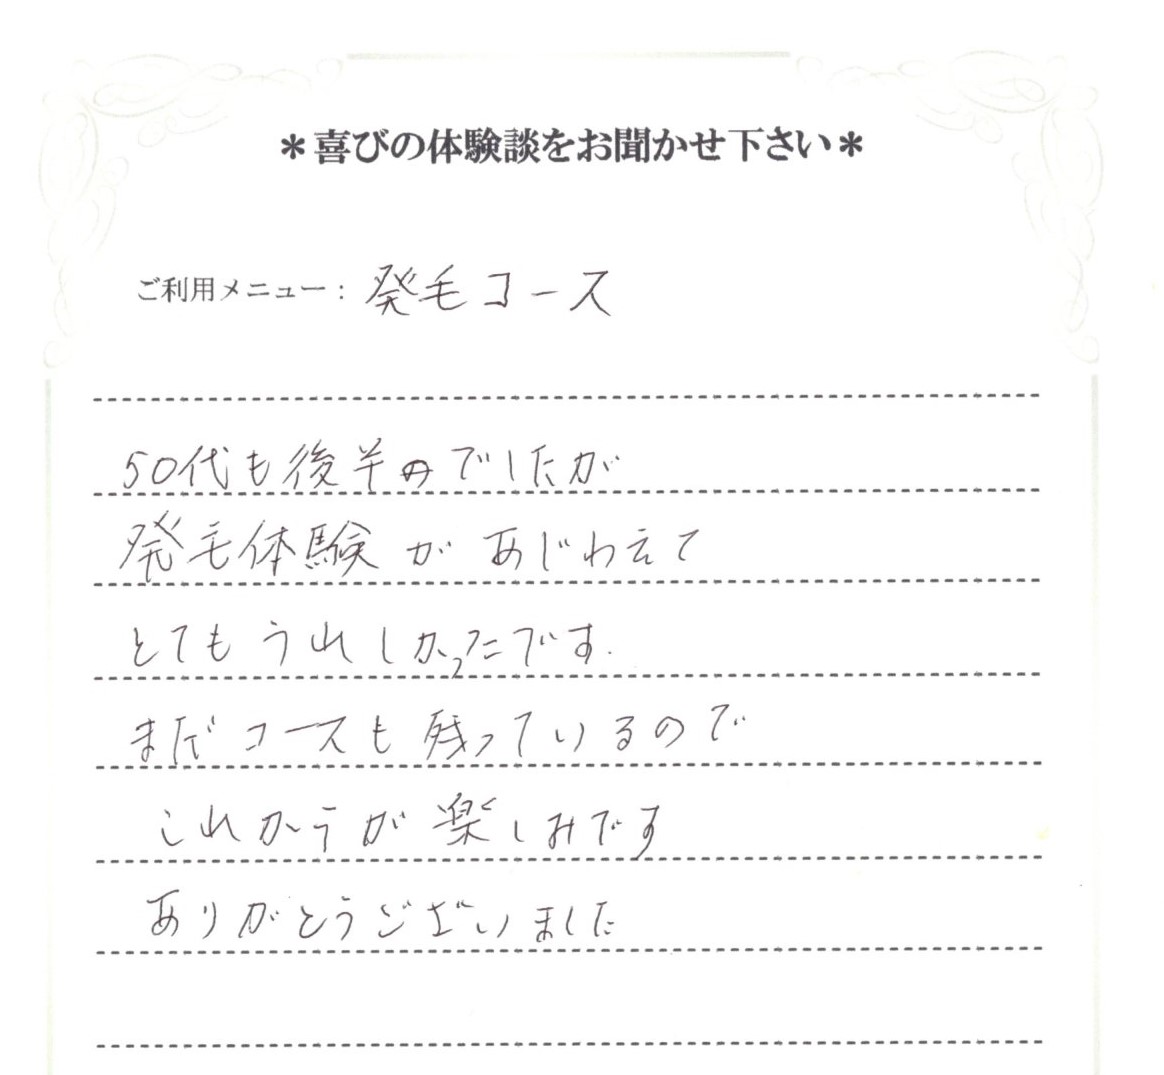 ＊喜びの体験談をお聞かせ下さい＊
ご利用メニュー：発毛コース
50代も後半のでしたが
発毛体験があじわえて
とてもうれしかったです.
まだコースも残っているので
これからが楽しみです
ありがとうございました